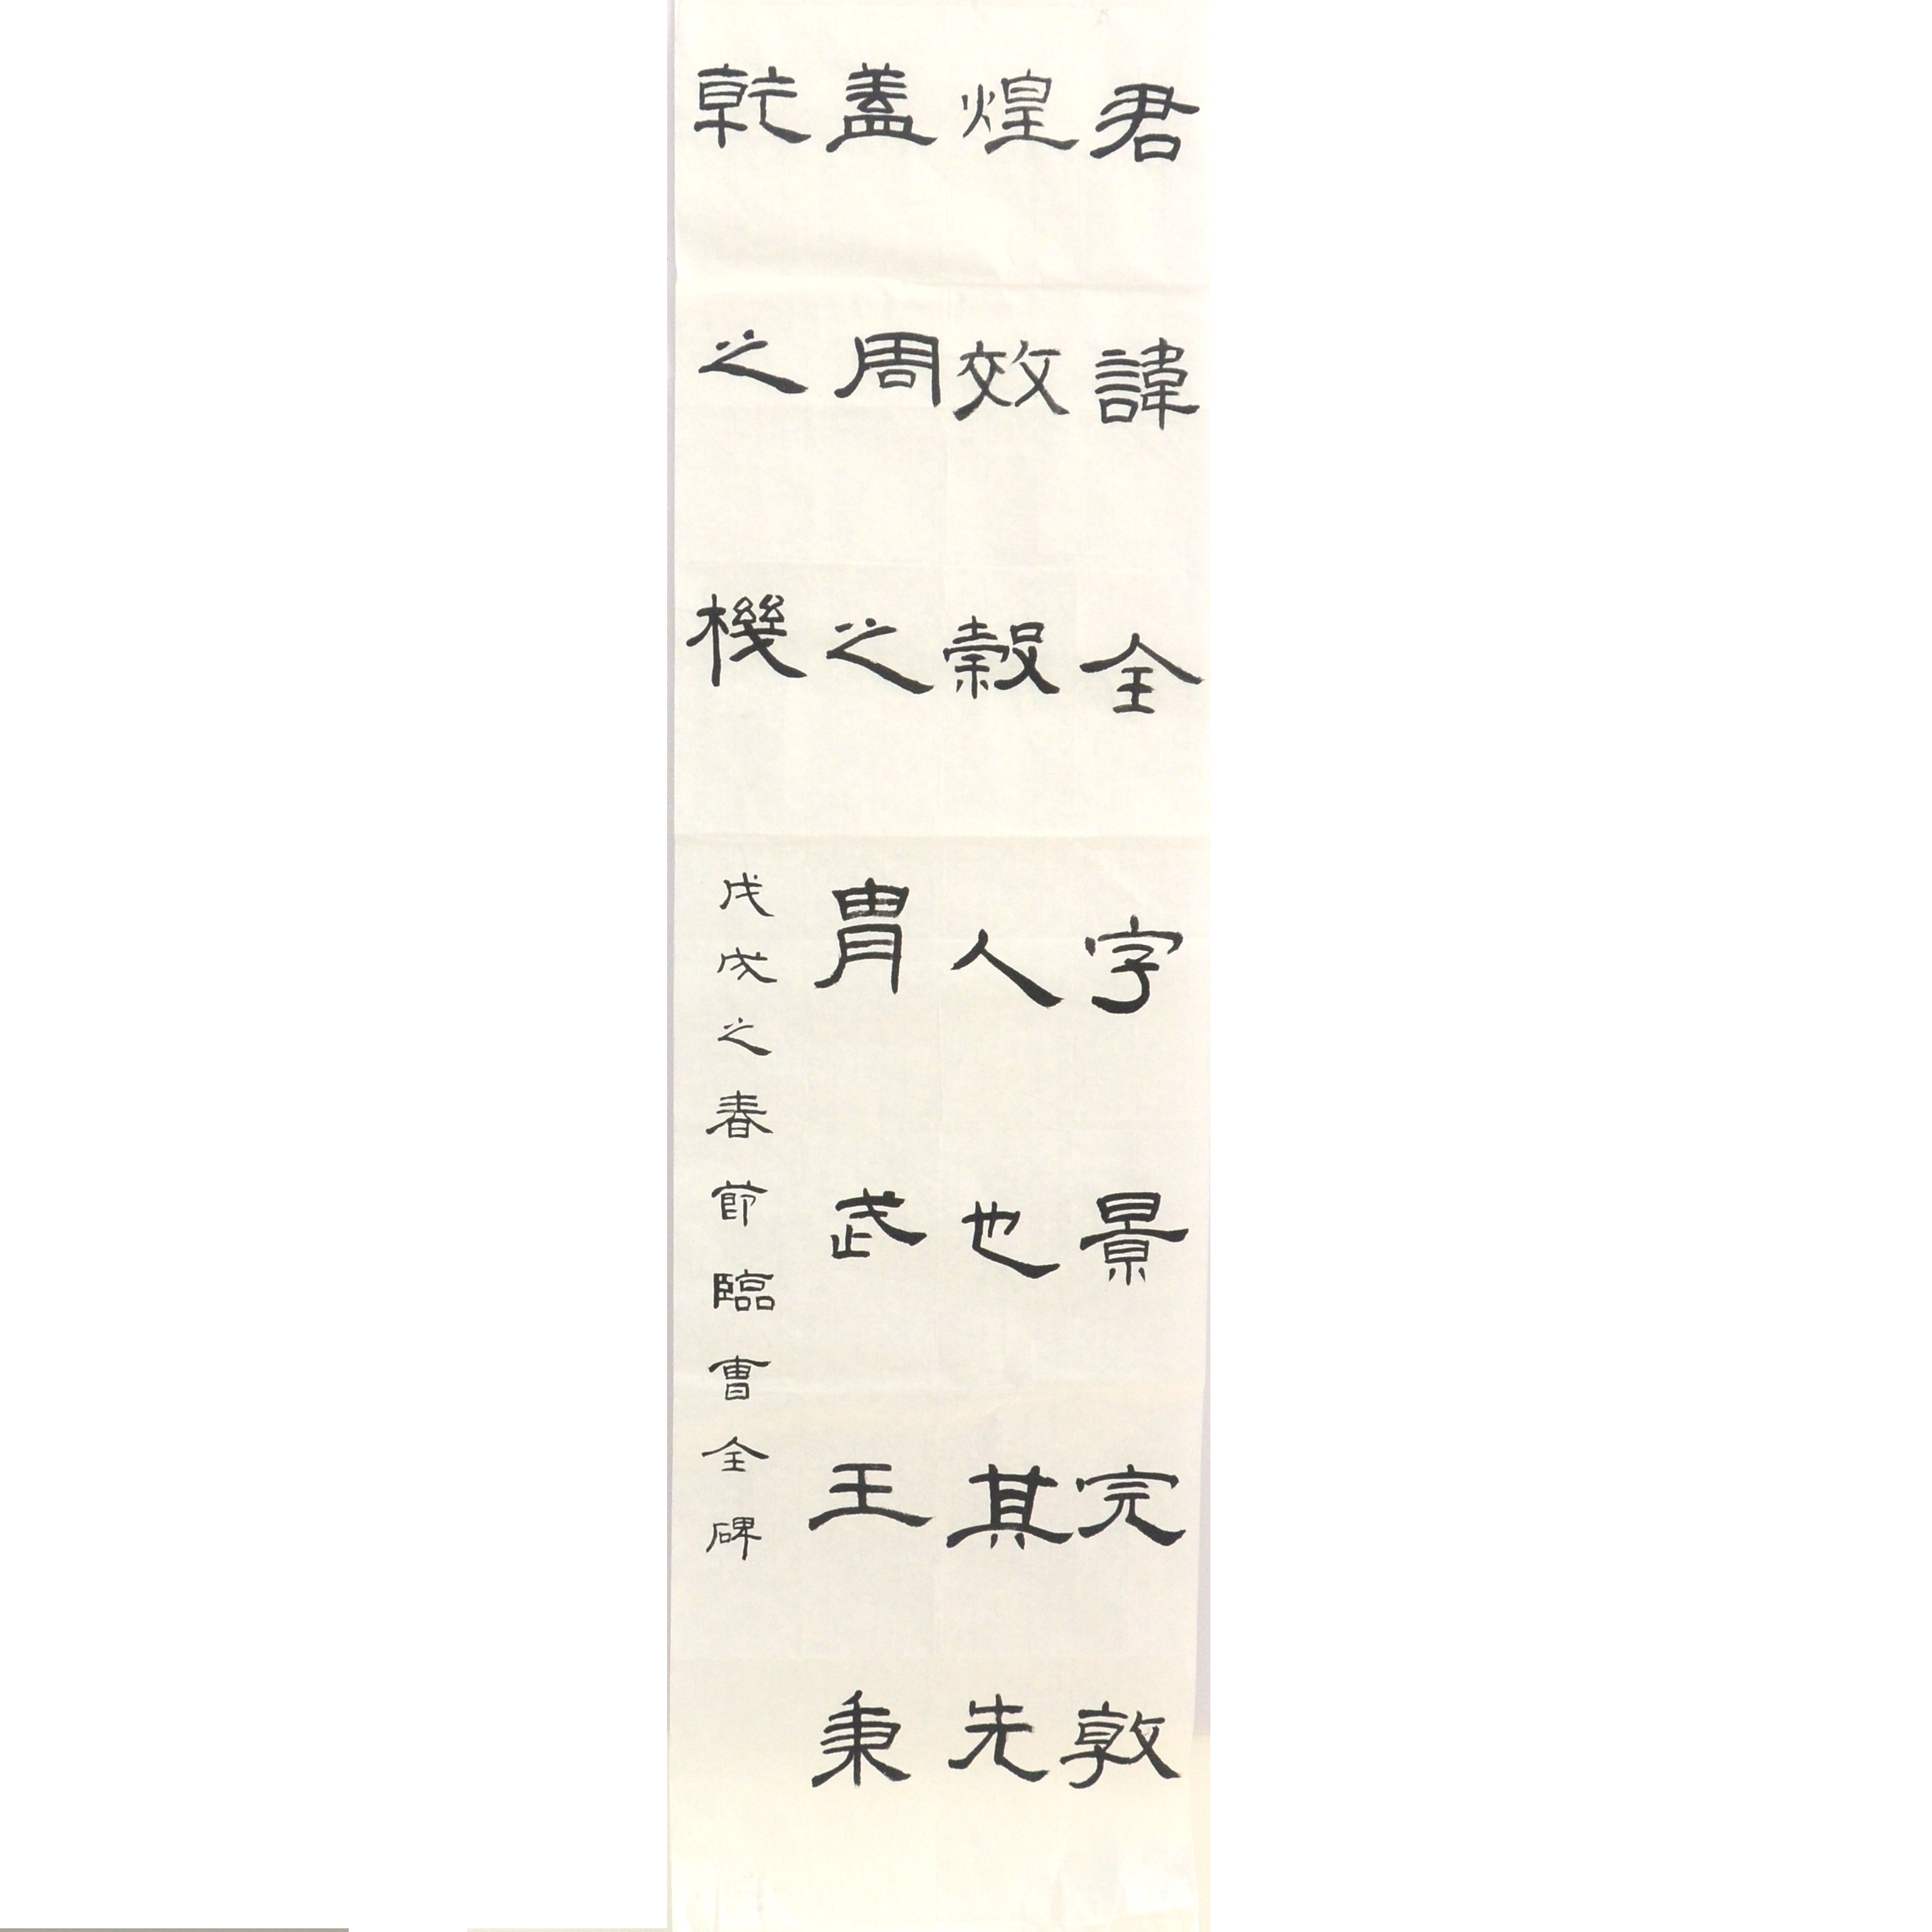 君諱全字景完敦
煌效穀人也其先
蓋周之胄武王秉
乾之機
戊戌之春節臨曹全碑